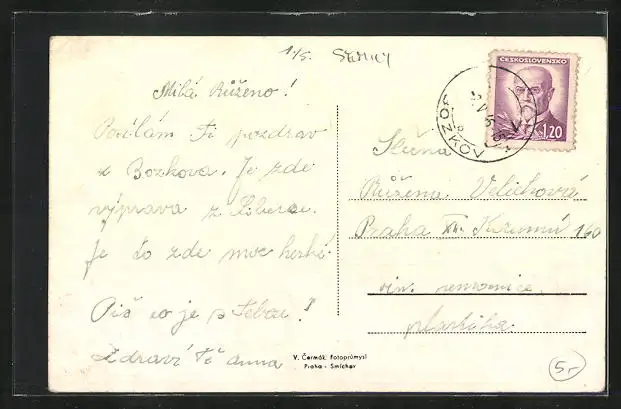 1/5. SEMILY
Milá Růženo!
Posílám Ti pozdrav
z Bozkova. Je zde
výprava z Liberce.
Je to zde moc hezké.
Piš co je s Tebou!
Zdraví Tě Anna
ČESKOSLOVENSKO
1.20
BOZKOV
Slečna
Růžena Velichová
Praha XII. Korunní 160
civ. nemocnice
plastika
V. Čermák fotoprůmysl
Praha - Smíchov
5,-